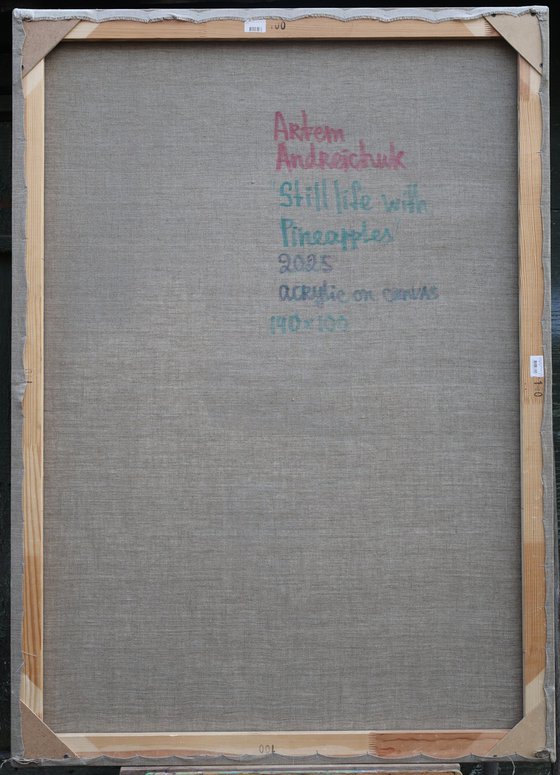 100
Artem
Andreichuk
"Still life with
Pineapples"
2025
acrylic on canvas
140 x 100
100